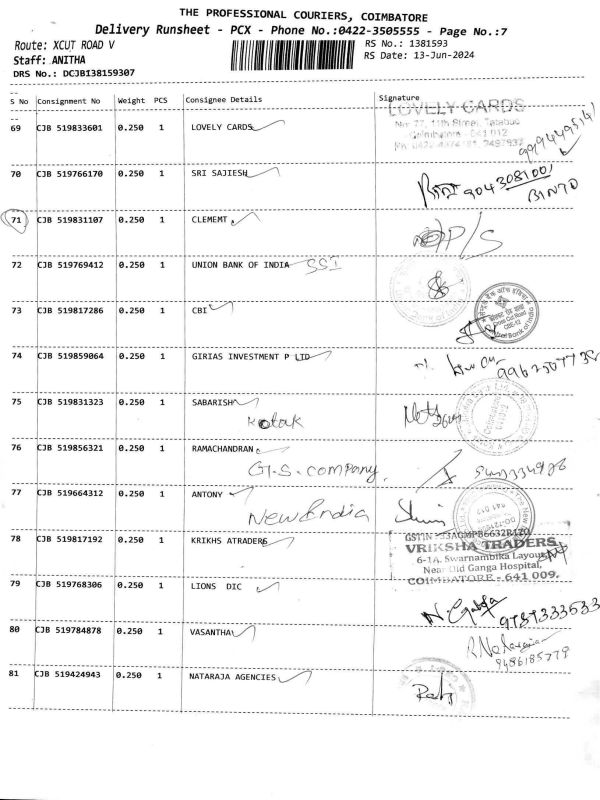 THE PROFESSIONAL COURIERS, COIMBATORE
Delivery Runsheet - PCX - Phone No.:0422-3505555 - Page No.:7
Route: XCUT ROAD V
RS No.: 1381593
Staff: ANITHA
RS Date: 13-Jun-2024
DRS No.: DCJB138159307
S No Consignment No Weight PCS Consignee Details Signature
LOVELY CARDS
69 CJB 519833601 0.250 1 LOVELY CARDS
Coimbatore - 641 012
70 CJB 519766170 0.250 1 SRI SAJIESH
9043081001
BINTO
71 CJB 519831107 0.250 1 CLEMEMT
P/S
72 CJB 519769412 0.250 1 UNION BANK OF INDIA SSI
73 CJB 519817286 0.250 1 CBI
74 CJB 519859064 0.250 1 GIRIAS INVESTMENT P LTD
75 CJB 519831323 0.250 1 SABARISH
Kotak
76 CJB 519856321 0.250 1 RAMACHANDRAN
G.S. company
77 CJB 519664312 0.250 1 ANTONY
New India
78 CJB 519817192 0.250 1 KRIKHS ATRADERS
VRIKSHA TRADERS
6-1A, Swarnambika Layout,
Near Old Ganga Hospital,
COIMBATORE - 641 009.
79 CJB 519768306 0.250 1 LIONS DIC
80 CJB 519784878 0.250 1 VASANTHA
9486185779
81 CJB 519424943 0.250 1 NATARAJA AGENCIES